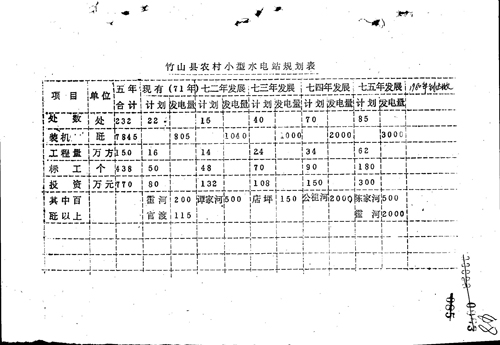 竹山县农村小型水电站规划表
项目 单位 五年合计 现有(71年) 七二年发展 七三年发展 七四年发展 七五年发展
计划 发电量 计划 发电量 计划 发电量 计划 发电量 计划 发电量
处数 处 232 22 15 40 70 85
装机 瓩 7845 805 1040 2000 3000
工程量 万方 150 16 14 24 34 62
标工 个 438 50 48 70 90 180
投资 万元 770 80 132 108 150 300
其中百 霍河 200 谭家河 500 店坪 150 公祖河 2000 陈家河 500
瓩以上 官渡 115 霍河 2000
085